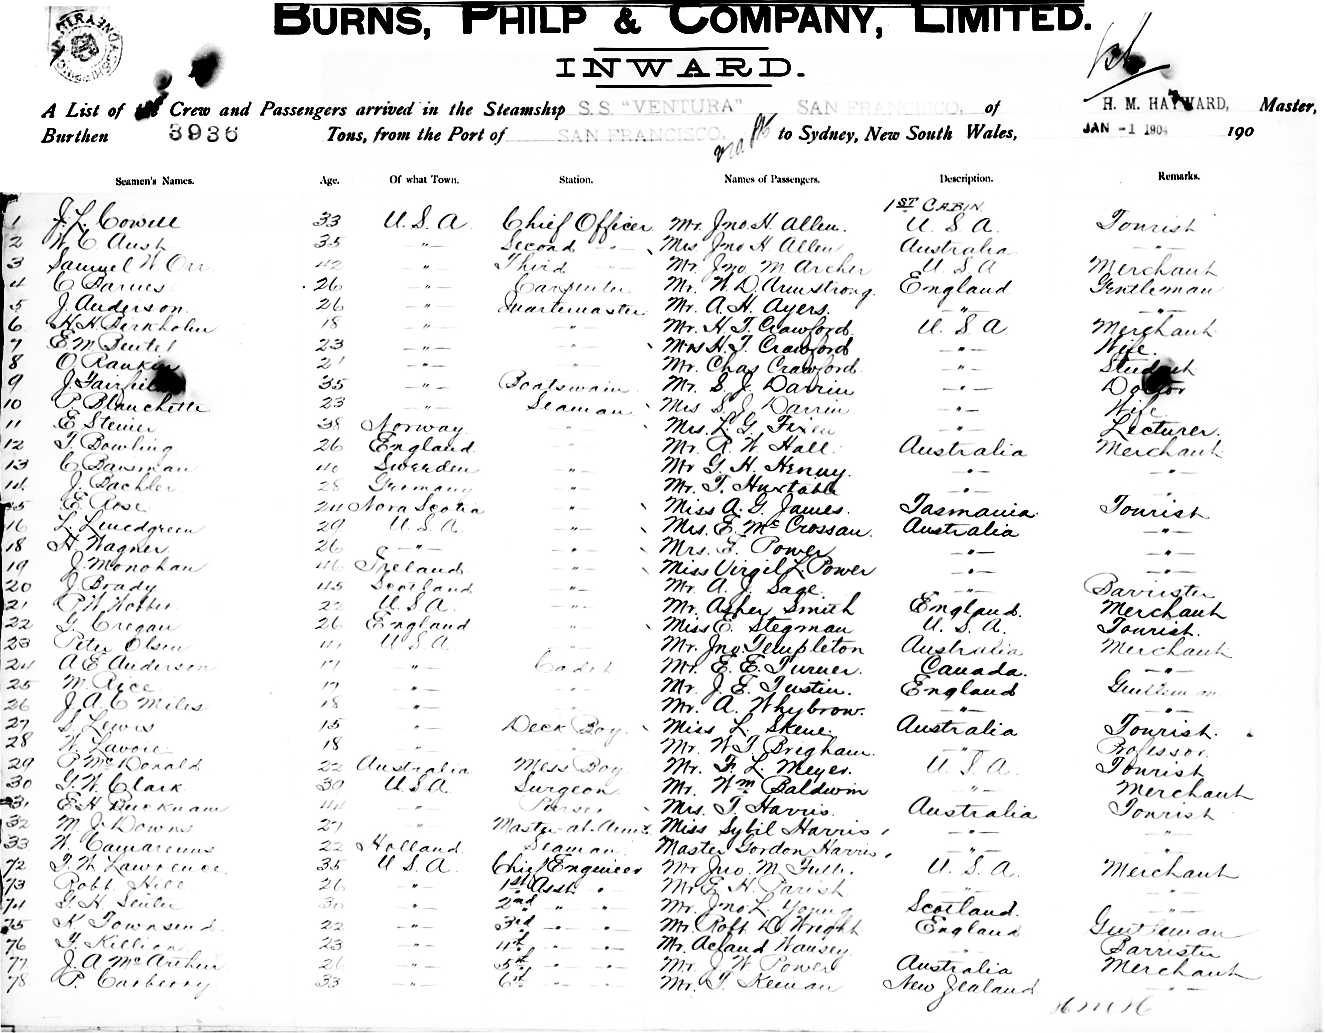 BURNS, PHILP & COMPANY, LIMITED.
INWARD.
A List of the Crew and Passengers arrived in the Steamship S.S. "VENTURA" SAN FRANCISCO. of H. M. HAYWARD, Master,
Burthen 3936 Tons, from the Port of SAN FRANCISCO. to Sydney, New South Wales, JAN -1 1904 190
Seamen's Names. Age. Of what Town. Station. Names of Passengers. Description. Remarks.
1ST CABIN
1 J. L. Cowell 33 U.S.A. Chief Officer Mr. Jno. H. Allen. U.S.A. Tourist
2 W C Aush 35 " Second " Mrs Jno H Allen Australia "
3 Samuel W Orr 42 " Third " Mr. Jno M Archer U.S.A Merchant
4 C Barnes 26 " Carpenter Mr. W. D. Armstrong. England Gentleman
5 J. Anderson 26 " Quartermaster Mr. A. H. Ayers. " "
6 H H Berkholm 18 " " Mr. H. T. Crawford U.S.A Merchant
7 E M Beutel 23 " " Mrs H. T. Crawford " Wife
8 O Rankin 21 " " Mr. Chas Crawford " Student
9 J. Fairfield 35 " Boatswain Mr. S. J. Darrin " Doctor
10 P. Blanchette 23 " Seaman Mrs S. J. Darrin " Wife
11 E Steiner 38 Norway " Mrs. L. G. " Lecturer.
12 T. Bowling 26 England " Mr. R. W Hall Australia Merchant
13 C Bansman 40 Sweeden " Mr G. H. Henry. " "
14 J. Bachler 28 Germany " Mr. T. Huxtable " "
15 E Rose 24 Nova Scotia " Miss A. G. James. Tasmania Tourist
16 L. Lundgreen 29 U.S.A " Mrs. E. McCrossan. Australia "
18 H Wagner 26 " " Mrs. E. Power " "
19 J. Monohan 46 Ireland " Miss Virgil L. Power " "
20 J Brady 45 Scotland " Mr. A. J. Sage. " Barrister
21 P. W. 22 U.S.A. " Mr. Asher Smith England. Merchant
22 G. Cregan 26 England " Miss E. Stegman U.S.A. Tourist.
23 Peter Olsen 41 U.S.A " Mr. Jno. Templeton Australia Merchant
24 A E Anderson 17 " Cadet Mr. E. E. Turner. Canada. "
25 W. Rice 17 " " Mr. J. E. Tustin. England Gentleman
26 J. A. C Miles 18 " " Mr. A. Whybrow. " "
27 S Lewis 15 " Deck Boy. Miss L. Skene. Australia Tourist.
28 W. Lavore 18 " " Mr. W. T. Bregham. " Professor
29 P McDonald 22 Australia Mess Boy Mr. F. L. Meyer. U.S.A. Tourist
30 G. W. Clark 30 U.S.A. Surgeon Mr. Wm Baldwin " Merchant
31 E. H. Bucknam 44 " Purser Mrs. T. Harris. Australia Tourist
32 M J. Downs 27 " Master-at-Arms. Miss Sybil Harris " "
33 W. Camarenus 22 Holland Seaman Master Gordon Harris " "
72 T. W Lawrence. 35 U.S.A. Chief Engineer Mr Jno. M. U.S.A. Merchant
73 Robt Hill 26 " 1st Asst. " Mr. E. H. Parish " "
74 G. H 30 " 2nd " " Mr. Jno. L. Young Scotland. "
75 K Townsend 22 " 3rd " " Mr. Robt. D Wright England Gentleman
76 T. Killion 23 " 4th " " Mr. Acland Wansey " Barrister
77 J. A McArthur 26 " 5th " " Mr. J. W Power Australia Merchant
78 P Carberry 33 " 6th " " Mr. T. Keenan New Zealand "
H M H